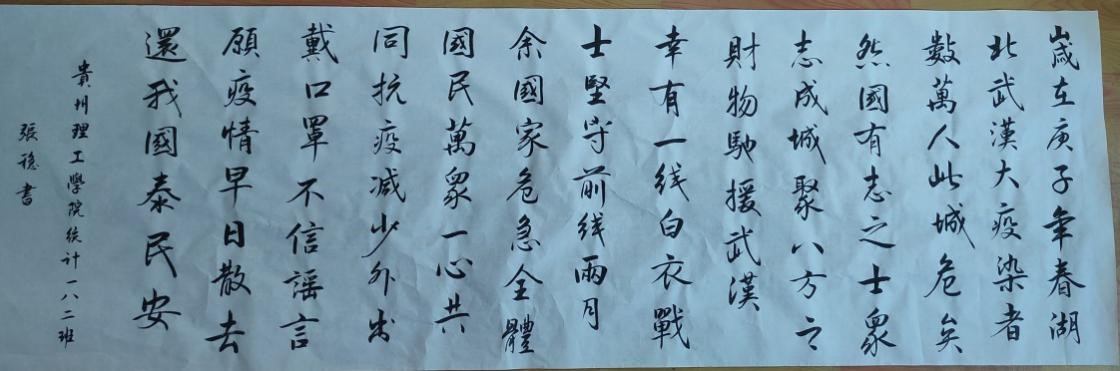 歲在庚子年春湖
北武漢大疫染者
數萬人此城危矣
然國有志之士眾
志成城聚八方之
財物馳援武漢
幸有一线白衣戰
士堅守前线兩月
余國家危急全體
國民萬眾一心共
同抗疫减少外出
戴口罩不信謠言
願疫情早日散去
還我國泰民安
貴州理工學院统计一八二班
張稳書